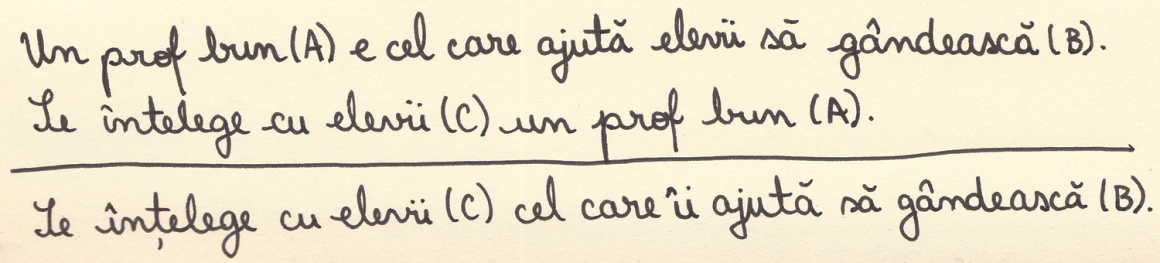 Un prof bun (A) e cel care ajută elevii să gândească (B).
Se întelege cu elevii (C) un prof bun (A).
Se înțelege cu elevii (C) cel care îi ajută să gândească (B).